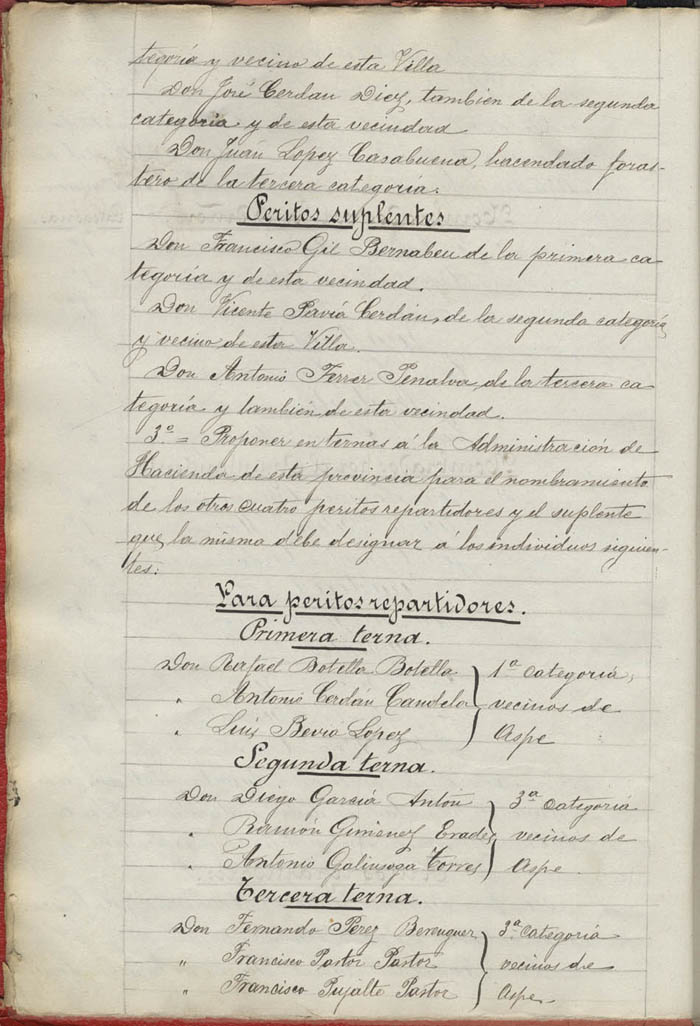 tegoría y vecino de esta Villa
Don José Cerdan Diez, tambien de la segunda
categoria y de esta vecindad
Don Juan Lopez Casabuena, hacendado foras-
tero de la tercera categoria.
Peritos suplentes
Don Francisco Gil Bernabeu de la primera ca
tegoria y de esta vecindad.
Don Vicente Pavía Cerdán, de la segunda categoría
y vecino de esta Villa.
Don Antonio Ferrer Penalva, de la tercera ca
tegoría y tambien de esta vecindad.
3.º = Proponer en ternas á la Administración de
Hacienda de esta provincia para el nombramiento
de los otros cuatro peritos repartidores y el suplente
que la misma debe designar á los individuos siguien-
tes:
Para peritos repartidores.
Primera terna.
Don Rafael Botella Botella } 1ª categoría,
" Antonio Cerdán Candela } vecinos de
" Luis Beviá Lopez } Aspe
Segunda terna.
Don Diego García Antón } 3ª categoría
" Ramón Gimenez Erades } vecinos de
" Antonio Galinsoga Torres } Aspe.
Tercera terna.
Don Fernando Pérez Berenguer } 3ª categoría
" Francisco Pastor Pastor } vecinos de
" Francisco Pujalte Pastor } Aspe.